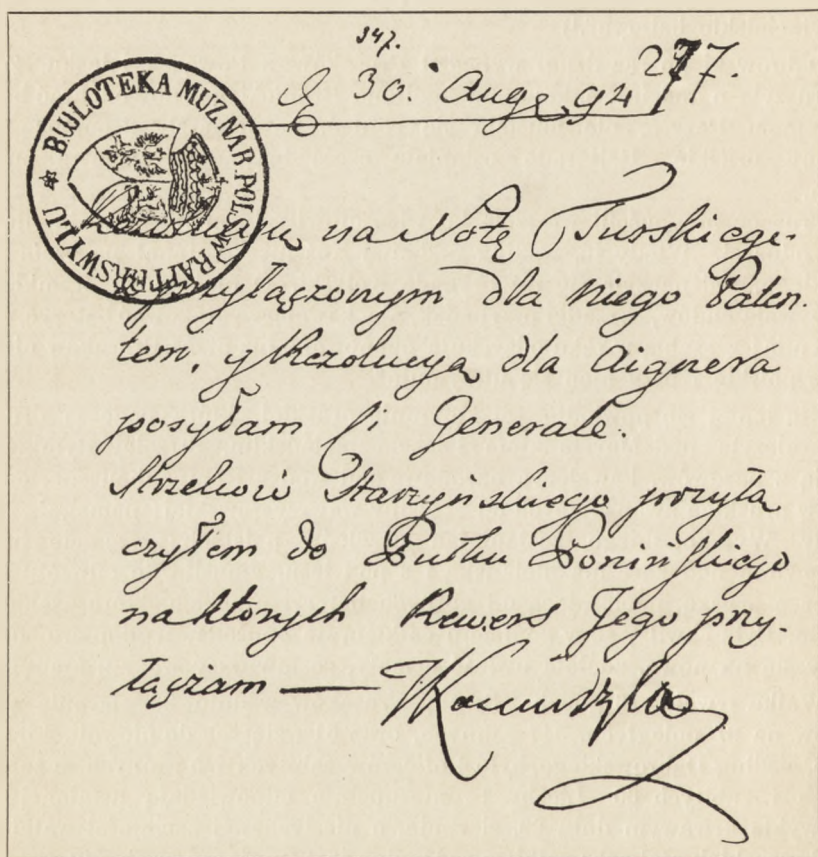 347.
277.
30. Augę 94
BIBLIOTEKA MUZ NAR POLS W RAPPERSWYLU
Rezolucyą na Notę Turskiego
przyłączonym dla Niego Paten.
tem, y Rezolucyą dla Aignera
posyłam Ci Generale.
Strzelców Starzyńskiego przyłą
czyłem do Pułku Ponińskiego
na których Rewers Jego przy.
łączam — TKosciuszko